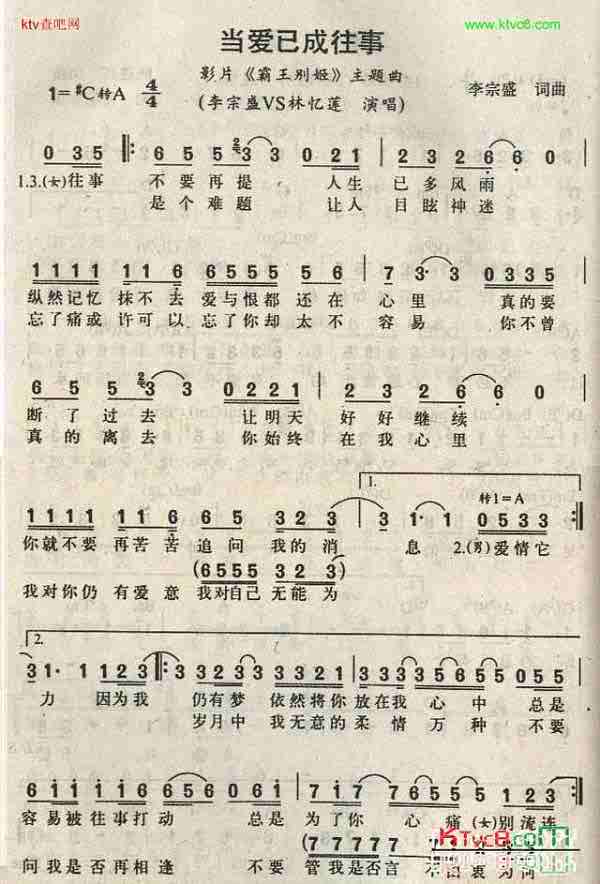 ktv查吧网
www.ktvc8.com
当爱已成往事
影片《霸王别姬》主题曲
1=#C转A 4/4
(李宗盛VS林忆莲 演唱)
李宗盛 词曲
0 3 5 5 5 5 3 3 0 2 1 2 3 2 6 6 0
1.3.(女)往事 不要再提 人生 已多风雨
是个难题 让人 目眩神迷
1 1 1 1 1 1 6 6 5 5 5 5 6 5 7 3 3 0 3 3 5
纵然记忆 抹不去 爱与恨都还在 心里 真的要
忘了痛或许可以 忘了你却太不 容易 你不曾
6 5 5 3 3 0 2 2 1 2 3 2 6 6 0
断了过去 让明天 好好继续
真的离去 你始终 在我心里
1.
转1=A
1 1 1 1 1 6 6 6 5 3 2 3 3 1 1 0 5 3 3
你就不要 再苦苦 追问 我的消 息 2.(男)爱情它
(6 5 5 5 3 2 3)
我对你仍 有爱意 我对自己 无能为
2.
3 1 1 1 1 2 3 3 3 5 3 3 3 2 1 3 3 3 3 5 5 0 5 5
力 因为我 仍有梦 依然将你 放在我 心中 总是
岁月中 我无意的 柔情 万种 不要
容易被往事打动 总是 为了你 心 痛 (女)别流连
KTvc8.com
问我是否再相逢 不要 管我是否言 不由衷 为何